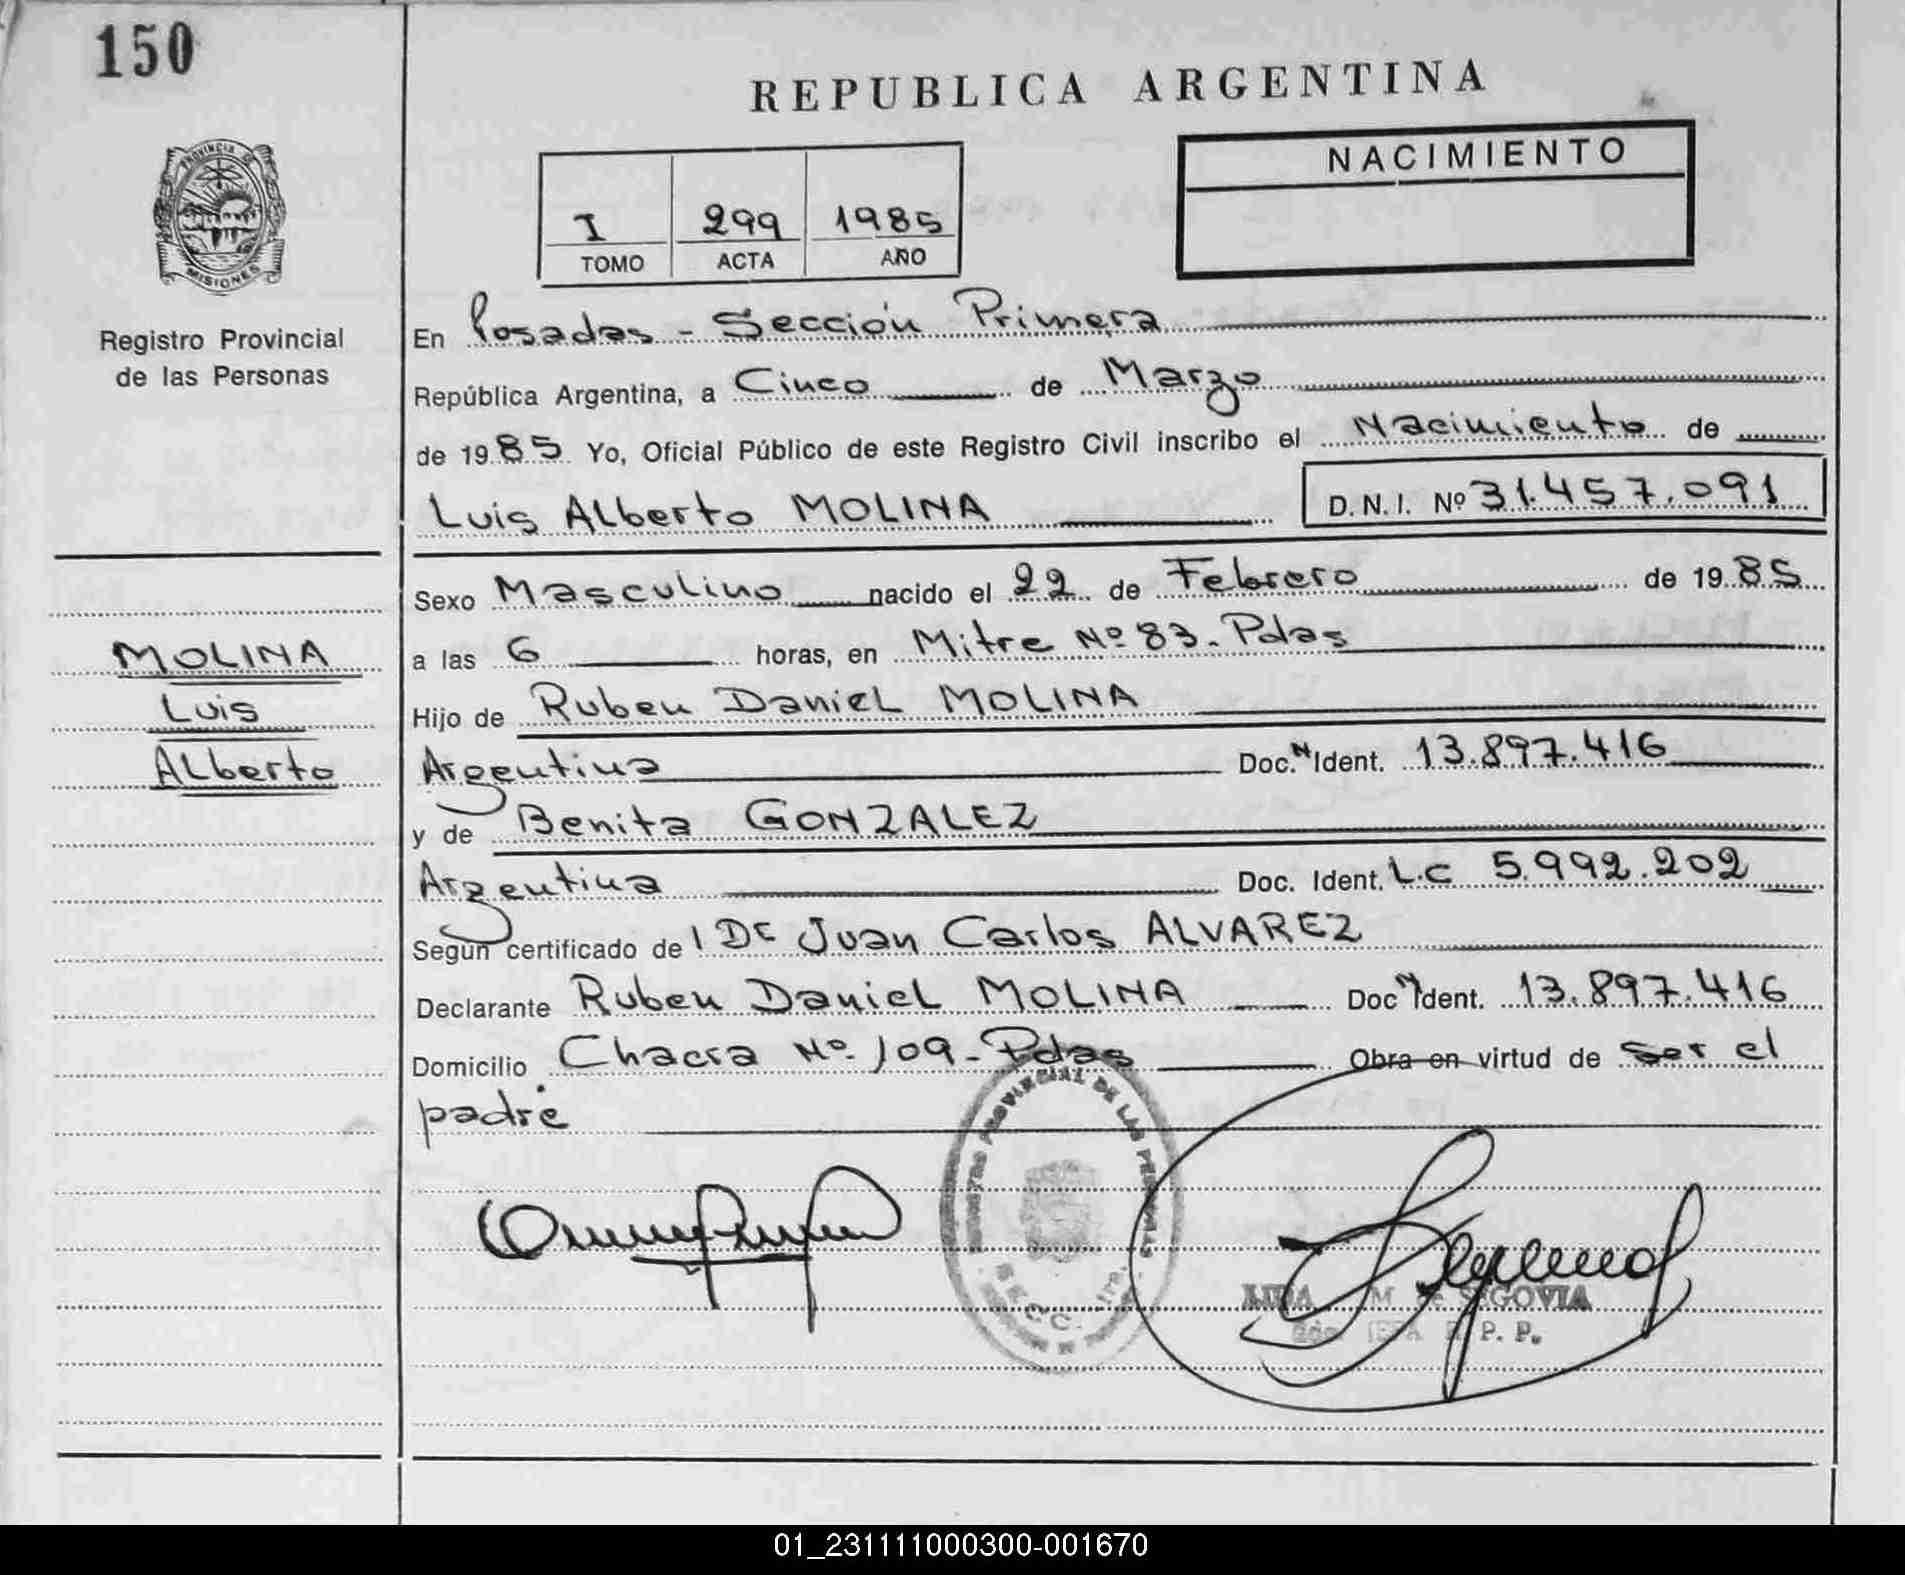 150
REPUBLICA ARGENTINA
NACIMIENTO
PROVINCIA DE
MISIONES
I 299 1985
TOMO ACTA AÑO
Registro Provincial
de las Personas
En Posadas - Sección Primera
República Argentina, a Cinco de Marzo
de 1985 Yo, Oficial Público de este Registro Civil inscribo el Nacimiento de
Luis Alberto MOLINA D.N.I. Nº 31.457.091
Sexo Masculino nacido el 22 de Febrero de 1985
MOLINA
Luis
Alberto
a las 6 horas, en Mitre Nº 83. Pdas
Hijo de Ruben Daniel MOLINA
Argentina Doc. N Ident. 13.897.416
y de Benita GONZALEZ
Argentina Doc. Ident. L.C 5.992.202
Según certificado de l Dr Juan Carlos ALVAREZ
Declarante Ruben Daniel MOLINA Doc N Ident. 13.897.416
Domicilio Chacra Nº 109 - Pdas Obra en virtud de ser el
padre
REGISTRO PROVINCIAL DE LAS PERSONAS
SECC. 1ra.
LIDA M de SEGOVIA
R P. P.
01_231111000300-001670